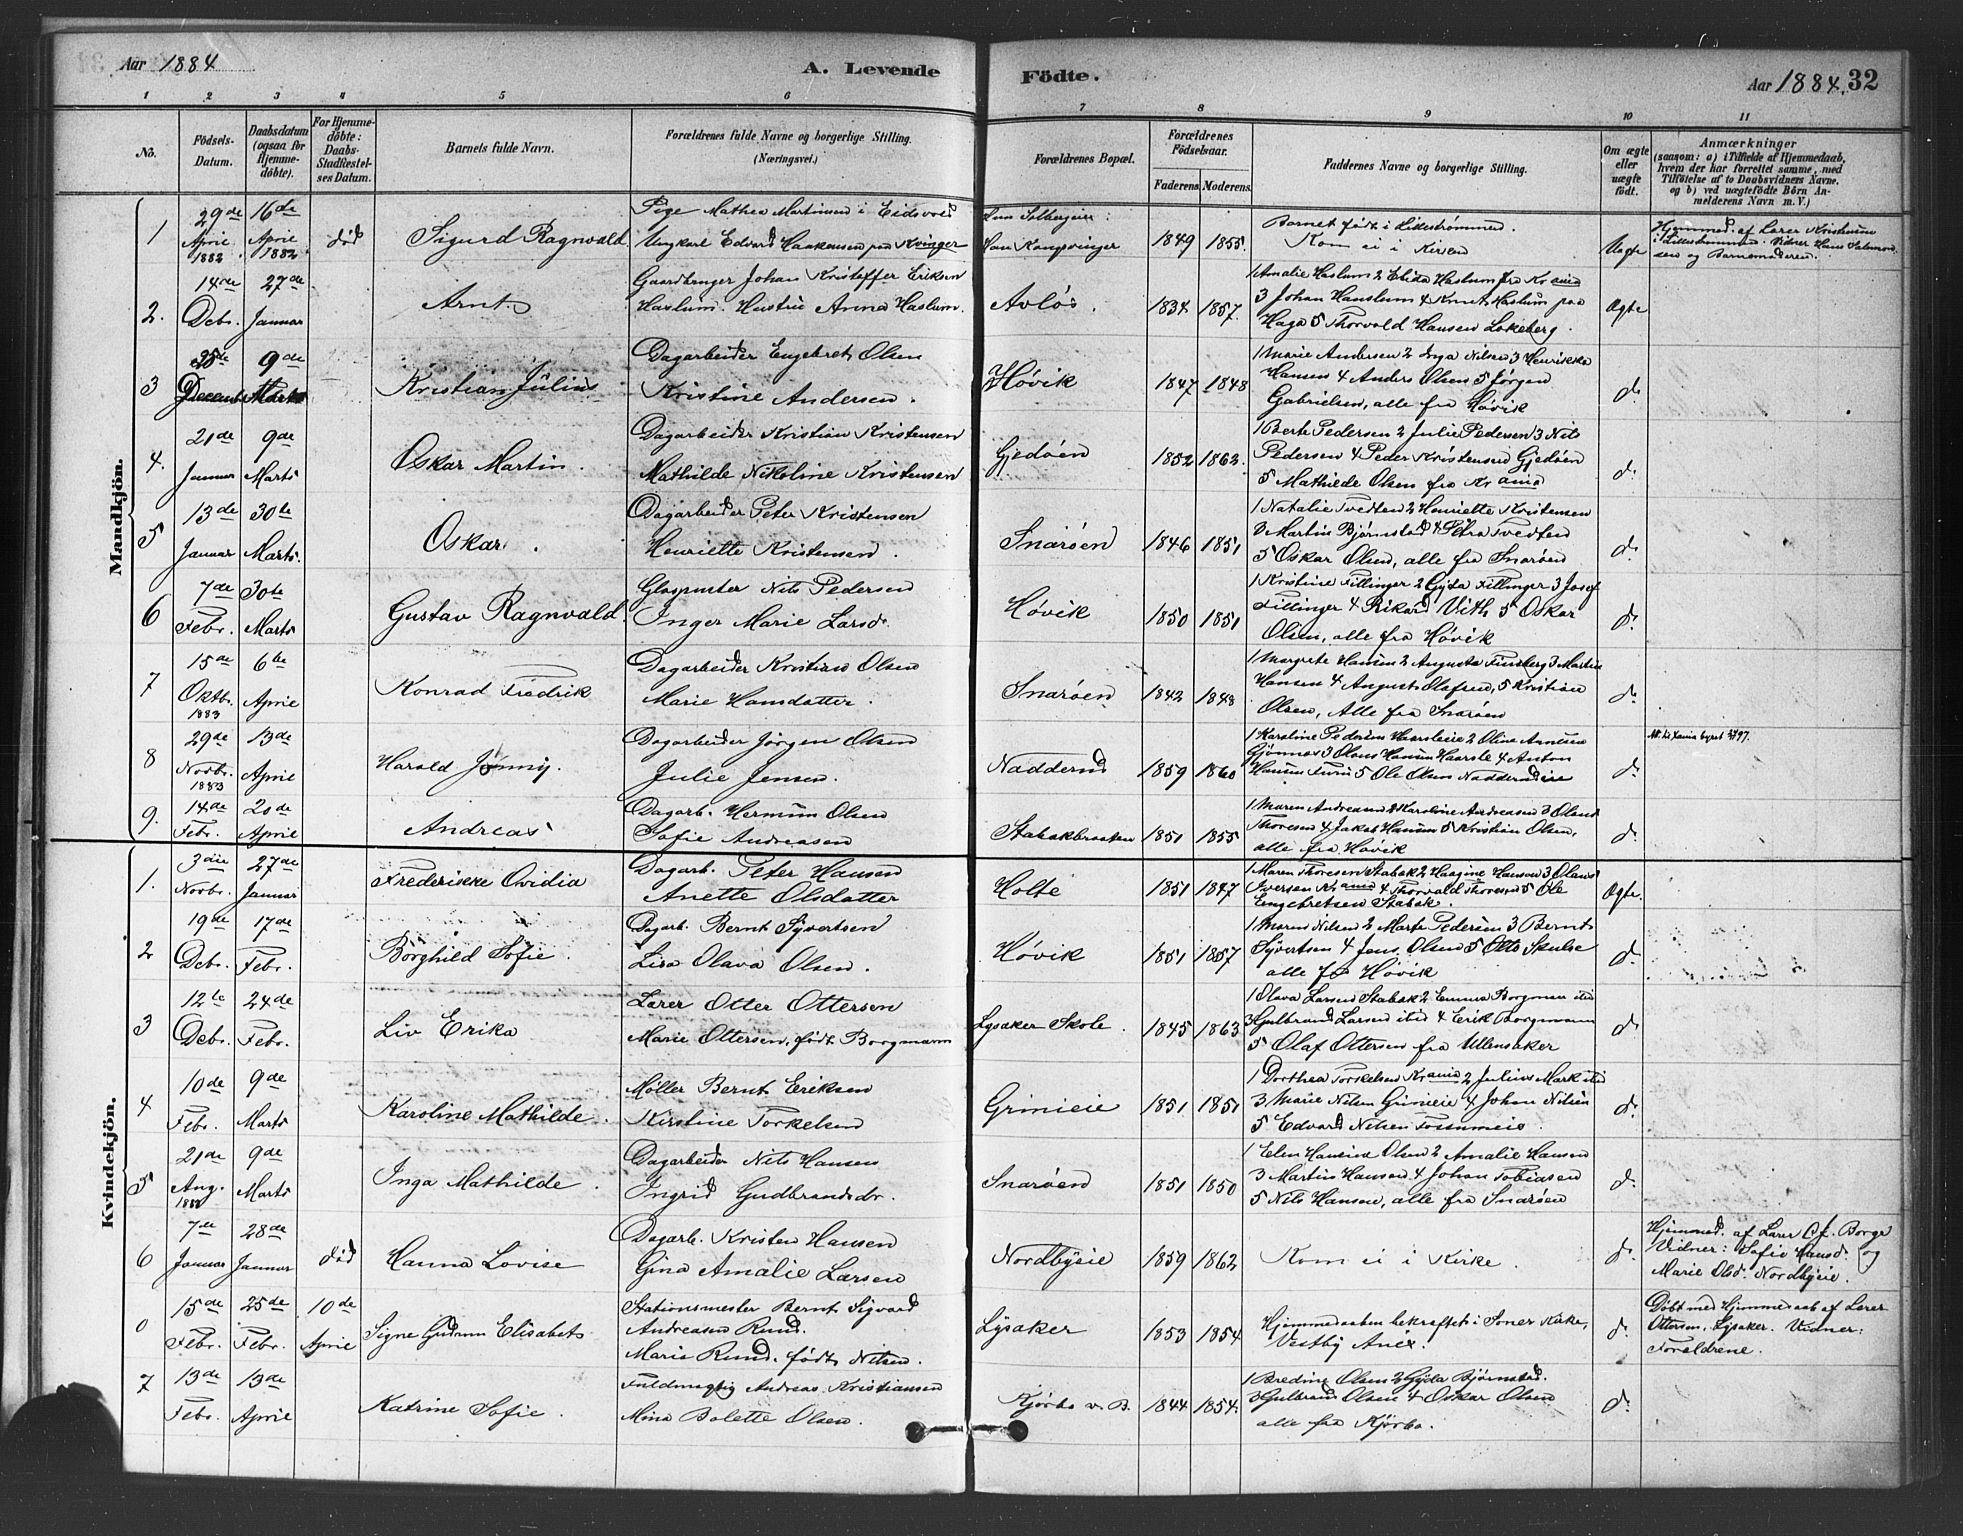 Aar 1884
A. Levende
Födte.
Aar 1884. 32
1 2 3 4 5 6 7 8 9 10 11
No.
Födsels-Datum.
Daabsdatum (ogsaa for Hjemme-döbte).
For Hjemme-döbte: Daabs-Stadfæstel-ses Datum.
Barnets fulde Navn.
Forældrenes fulde Navne og borgerlige Stilling.
(Næringsvei.)
Forældrenes Bopæl.
Forældrenes Födselsaar.
Faderens. Moderens.
Faddernes Navne og borgerlige Stilling.
Om ægte eller uægte födt.
Anmærkninger
(saasom: a) i Tilfælde af Hjemmedaab,
hvem der har forrettet samme, med
Tilföielse af to Daabsvidners Navne,
og b) ved uægtefödte Börn An-
melderens Navn m. V.)
Mandkjön.
1 29de April 1882 16de April 1882 död Sigurd Ragnvald
Pige Mathea Martinsen i Eidsvold
Ungkarl Edvard Haakensen paa Kvinger
1849 1855.
Barnet født i Lillestrømmen.
Kom ei i Kirken
Uægte
Hjemmed. af Lærer Kristensen
i Lillestrømmen. Vidner Hans
sen og Barnemoderen.
2. 14de Debr. 27de Januar Arnt
Gaardbruger Johan Kristoffer Eriksen
Haslum. Hustru Anna Haslum.
Avløs. 1834 1857.
1 Amalie Haslum 2 Elida Haslum fra Krania
3 Johan Haslum 4 Knut Haslum paa
Haga 5 Thorvald Hansen Løkeberg.
Ægte
3 25de Decemb 9de Marts Kristian Julius
Dagarbeider Engebret Olsen
Kristine Andersen.
Høvik 1847 1848
1 Marie Andersen 2 Inga Nilsen 3 Henrikka
Hansen 4 Anders Olsen 5 Jørgen
Gabrielsen, alle fra Høvik
d.
4. 21de Januar 9de Marts Oskar Martin.
Dagarbeider Kristian Kristensen
Mathilde Nikoline Kristensen
Gjedøen 1852 1862.
1 Berte Pedersen 2 Julie Pedersen 3 Nils
Pedersen 4 Peder Kristensen Gjedøen
5 Mathilde Olsen fra Krania
d.
5 13de Januar 30te Marts. Oskar.
Dagarbeider Peter Kristensen
Henriette Kristensen.
Snarøen 1846 1851
1 Natalie Tvedten 2 Henriette Kristensen
3 Martin Bjørnstad 4 Petra Tvedten
5 Oskar Olsen, alle fra Snarøen
d.
6 7de Febr. 30te Marts Gustav Ragnvald.
Glaspuster Nils Pedersen
Inger Marie Larsd.
Høvik 1850 1851
1 Kristine Fillinger 2 Gyda Fillinger 3 Josef
Fillinger 4 Rikard Vith 5 Oskar
Olsen, alle fra Høvik
d.
7 15de Oktbr. 1883 6te April Konrad Fredrik
Dagarbeider Kristian Olsen
Marie Hansdatter.
Snarøen 1842 1848
1 Margrete Hansen 2 Augusta Finsberg 3 Martin
Hansen 4 August Olafsen, 5 Kristian
Olsen, Alle fra Snarøen
d.
8 29de Novbr. 1883 13de April Harald Jonny.
Dagarbeider Jørgen Olsen
Julie Jensen.
Naddernd 1859 1860
1 Karoline Pedersen Haarsleie 2 Oline Arnesen
Gjønnes 3 Olaus Hansen Haarsle 4 Anton
Hansen Furu 5 Ole Olsen Nadderndeie
d.
9. 14de Febr. 20de April Andreas
Dagarb. Herman Olsen
Sofie Andreasen
Stabækbraaten 1851 1855
1 Maren Andreasen 2 Karoline Andreasen 3 Olaus
Thoresen 4 Jakob Hansen 5 Kristian Olsen,
alle fra Høvik
d.
Kvindekjön.
1. 3die Novbr. 27de Januar Frederikke Ovidia
Dagarb. Peter Hansen
Anette Olsdatter
Holte 1851 1847
1 Maren Thoresen Stabæk 2 Haagine Hansen 3 Olaus
Iversen Krania 4 Thorvald Thoresen 5 Ole
Engebretsen Stabæk.
Ægte.
2 19de Debr. 17de Febr. Borghild Sofie.
Dagarb. Bernt Syvertsen
Lisa Olava Olsen.
Høvik 1851 1857
1 Maren Nilsen 2 Marte Pedersen 3 Bernt
Syvertsen 4 Jens Olsen 5 Otto Skulse
alle fra Høvik
d.
3 12te Debr. 24de Febr. Liv Erika
Lærer Otter Ottersen
Marie Ottersen, født Borgmann
Lysaker Skole. 1845 1863
1 Olava Larsen Stabæk 2 Emma Borgman itid
3 Gulbrand Larsen itid 4 Erik Borgmann
5 Olaf Ottersen fra Ullensaker
d.
4 10de Febr. 9de Marts Karoline Mathilde.
Møller Bernt Eriksen
Kirstine Torkelsen
Grinieie 1851 1851
1 Dorthea Torkelsen Krania 2 Julius Mark itid
3 Marie Nilsen Grinieie 4 Johan Nilsen
5 Edvard Nilsen Fossumeie.
d.
5 21de Aug. 9de Marts Inga Mathilde.
Dagarbeider Nils Hansen
Ingrid Gudbrandsdr.
Snarøen 1851 1850
1 Elen Hansine Olsen 2 Amalie Hansen
3 Martin Hansen 4 Johan Tobiasen
5 Nils Hansen, alle fra Snarøen
d.
6 7de Januar 28de Januar død Hanna Lovise
Dagarb. Kristen Hansen
Gina Amalie Larsen
Nordbyeie 1859 1862
Kom ei i Kirke.
d.
Hjemmed. af Lærer C. J. Borge
Vidner: Sofie Hansd. og
Marie Olsd. Nordbyeie.
0 15de Febr. 25de Febr. 10de April Signe Gudrun Elisabet
Stationsmester Bernt Sigvard
Andreasen Rund.
Marie Rund. født Nilsen.
Lysaker 1853 1854
Hjemmedaaben bekræftet i Soner Kirke,
Vestby Anex.
d.
Døbt med Hjemmedaab af Lærer
Ottersen, Lysaker. Vidner:
Forældrene.
7 13de Febr. 13de April Katrine Sofie.
Fuldmægtig Andreas Kristiansen
Mina Bolette Olsen.
Kjørbo v. B. 1844 1854.
1 Beredine Olsen 2 Gyda Bjørnstad.
3 Gulbrand Olsen 4 Oskar Olsen
alle fra Kjørbo.
d.